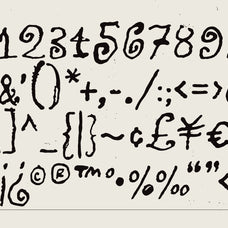 1234567890
&'()*+,-./:;<=>
]^_{|}~¢£¥€
¡¿©®™°·%‰“”<